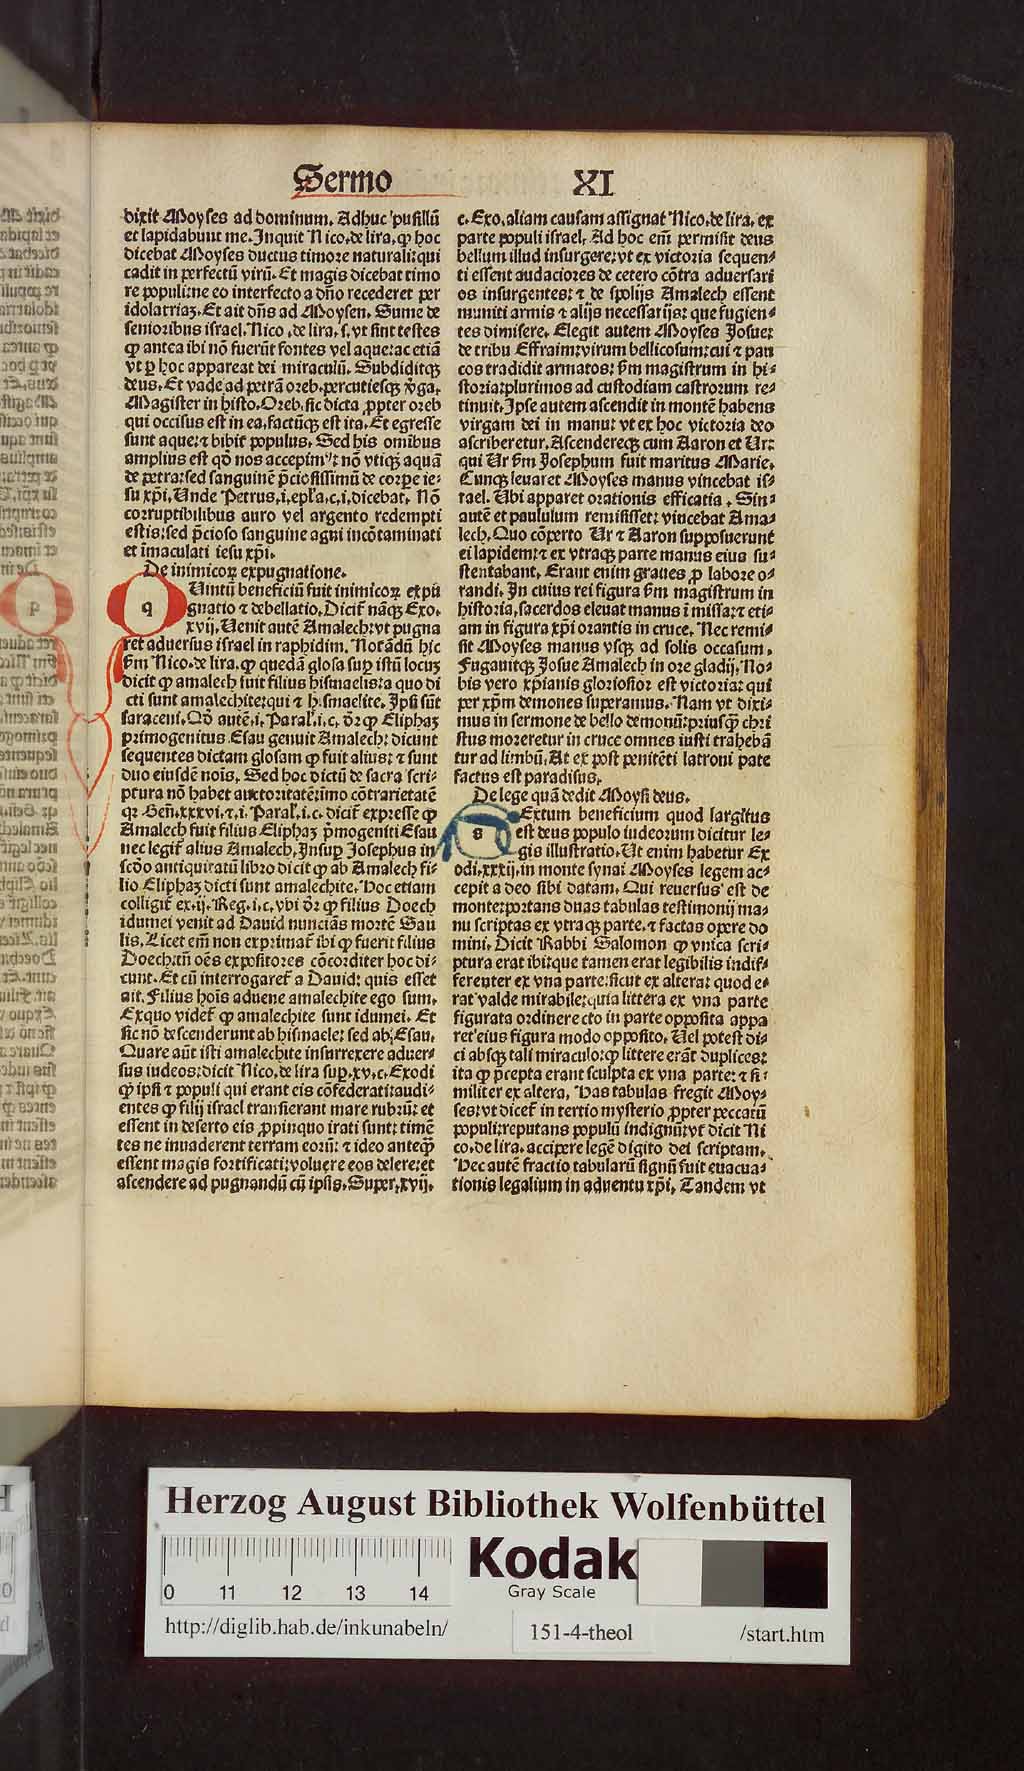 Sermo XI
dixit Moyses ad dominum. Adhuc pusillū
et lapidabunt me. Inquit Nico. de lira, ꝙ hoc
dicebat Moyses ductus timore naturali: qui
cadit in perfectū virū. Et magis dicebat timo
re populi: ne eo interfecto a dn̄o recederet per
idolatriaȝ. Et ait dn̄s ad Moysen. Sume de
senioribus israel. Nico. de lira. s. vt sint testes
ꝙ antea ibi nō fuerūt fontes vel aque: ac etiā
vt ꝑ hoc appareat dei miraculū. Subdiditqꝫ
deus. Et vade ad petrā oreb. percutiesqꝫ v̄ga.
Magister in histo. Oreb. sic dicta ꝓpter oreb
qui occisus est in ea. factūqꝫ est ita. Et egresse
sunt aque: ⁊ bibit populus. Sed his omībus
amplius est qō nos accepim⁹: nō vtiqꝫ aquā
de petra: sed sanguinē p̄ciosissimū de corpe ie⸗
su xp̄i. Unde Petrus. i. epl̄a. c. i. dicebat. Nō
corruptibilibus auro vel argento redempti
estis: sed p̄cioso sanguine agni incōtaminati
et īmaculati iesu xp̄i.
De inimicoꝝ expugnatione.
q Uintū beneficiū fuit inimicoꝝ expu
gnatio ⁊ debellatio. Dicit̄ nāqꝫ Exo.
xvij. Uenit autē Amalech: vt pugna
ret adversus israel in raphidim. Notādū hic
s̄m Nico. de lira. ꝙ quedā glosa suꝑ istū locuꝫ
dicit ꝙ amalech fuit filius hismaelis: a quo di
cti sunt amalechite: qui ⁊ hismaelite. Ipsi sūt
saraceni. Qō autē. i. Paral̄. i. c. dr̄ ꝙ Eliphaȝ
primogenitus Esau genuit Amalech: dicunt
sequentes dictam glosam ꝙ fuit alius: ⁊ sunt
duo eiusdē noīs. Sed hoc dictū de sacra scri⸗
ptura nō habet auctoritatē: īmo cōtrarietatē
qꝛ Gen̄. xxxvi. ⁊. i. Paral̄. i. c. dicit̄ expresse ꝙ
Amalech fuit filius Eliphaȝ p̄mogeniti Esau
nec legit̄ alius Amalech. Insuꝑ Josephus in
scōo antiquitatū libro dicit ꝙ ab Amalech fi⸗
lio Eliphaȝ dicti sunt amalechite. Hoc etiam
colligit̄ ex. ij. Reg. i. c. vbi dr̄ ꝙ filius Doech
idumei venit ad David nunciās mortē Sau
lis. Licet em̄ non exprimat̄ ibi ꝙ fuerit filius
Doech: tn̄ oēs expositores cōcorditer hoc di⸗
cunt. Et cū interrogaret̄ a David: quis esset
ait. Filius hoīs advene amalechite ego sum.
Exquo videt̄ ꝙ amalechite sunt idumei. Et
sic nō descenderunt ab hismaele: sed ab Esau.
Quare aūt isti amalechite insurrexere adver⸗
sus iudeos: dicit Nico. de lira suꝑ. xv. c. Exodi
ꝙ ipsi ⁊ populi qui erant eis cōfederati: audi⸗
entes ꝙ filij israel transierant mare rubrū: et
essent in deserto eis ꝓpinquo irati sunt: timē
tes ne invaderent terram eorū: ⁊ ideo anteqꝫ
essent magis fortificati: voluere eos delere: et
ascendere ad pugnandū cū ipsis. Super. xvij.
c. Exo. aliam causam assignat Nico. de lira. ex
parte populi israel. Ad hoc em̄ permisit deus
bellum illud insurgere: vt ex victoria sequen⸗
ti essent audaciores de cetero cōtra adversari
os insurgentes: ⁊ de spolijs Amalech essent
muniti armis ⁊ alijs necessarijs: que fugien⸗
tes dimisere. Elegit autem Moyses Josue:
de tribu Effraim: virum bellicosum: cui ⁊ pau
cos tradidit armatos: s̄m magistrum in hi⸗
storia: plurimos ad custodiam castrorum re⸗
tinuit. Ipse autem ascendit in montē habens
virgam dei in manu: vt ex hoc victoria deo
ascriberetur. Ascendereqꝫ cum Aaron et Ur:
qui Ur s̄m Josephum fuit maritus Marie.
Cunqꝫ levaret Moyses manus vincebat is⸗
rael. Ubi apparet orationis efficatia. Sin
autē et paululum remisisset: vincebat Ama⸗
lech. Quo cōperto Ur ⁊ Aaron supposuerunt
ei lapidem: ⁊ ex vtraqꝫ parte manus eius su⸗
stentabant. Erant enim graves ꝓ labore o⸗
randi. In cuius rei figura s̄m magistrum in
historia, sacerdos elevat manus ī missa: ⁊ eti⸗
am in figura xp̄i orantis in cruce. Nec remi⸗
sit Moyses manus vsqꝫ ad solis occasum.
Fugavitqꝫ Josue Amalech in ore gladij. No⸗
bis vero xp̄ianis gloriosior est victoria: qui
per xp̄m demones superamus. Nam vt dixi⸗
mus in sermone de bello demonū: priusqꝫ chri
stus moreretur in cruce omnes iusti trahebā
tur ad limbū. At ex post penitēti latroni pate
factus est paradisus.
De lege quā dedit Moysi deus.
s Extum beneficium quod largitus
est deus populo iudeorum dicitur le⸗
gis illustratio. Ut enim habetur Ex
odi. xxxij. in monte synai Moyses legem ac⸗
cepit a deo sibi datam. Qui reversus est de
monte: portans duas tabulas testimonij ma⸗
nu scriptas ex vtraqꝫ parte. ⁊ factas opere do
mini. Dicit Rabbi Salomon ꝙ vnica scri⸗
ptura erat ibi: que tamen erat legibilis indif⸗
ferenter ex vna parte: sicut ex altera: quod e⸗
rat valde mirabile: quia littera ex vna parte
figurata ordine recto in parte opposita appa
ret eius figura modo opposito. Uel potest di⸗
ci absqꝫ tali miraculo: ꝙ littere erāt duplices:
ita ꝙ p̄cepta erant sculpta ex vna parte: ⁊ si⸗
militer ex altera. Has tabulas fregit Moy⸗
ses: vt dicet̄ in tertio mysterio ꝓpter peccatū
populi: reputans populū indignū: vt dicit Ni
co. de lira. accipere legē digito dei scriptam.
Hec autē fractio tabularū signū fuit evacua⸗
tionis legalium in adventu xp̄i. Tandem vt
Herzog August Bibliothek Wolfenbüttel
0 11 12 13 14
Kodak
Gray Scale
http://diglib.hab.de/inkunabeln/ 151-4-theol /start.htm